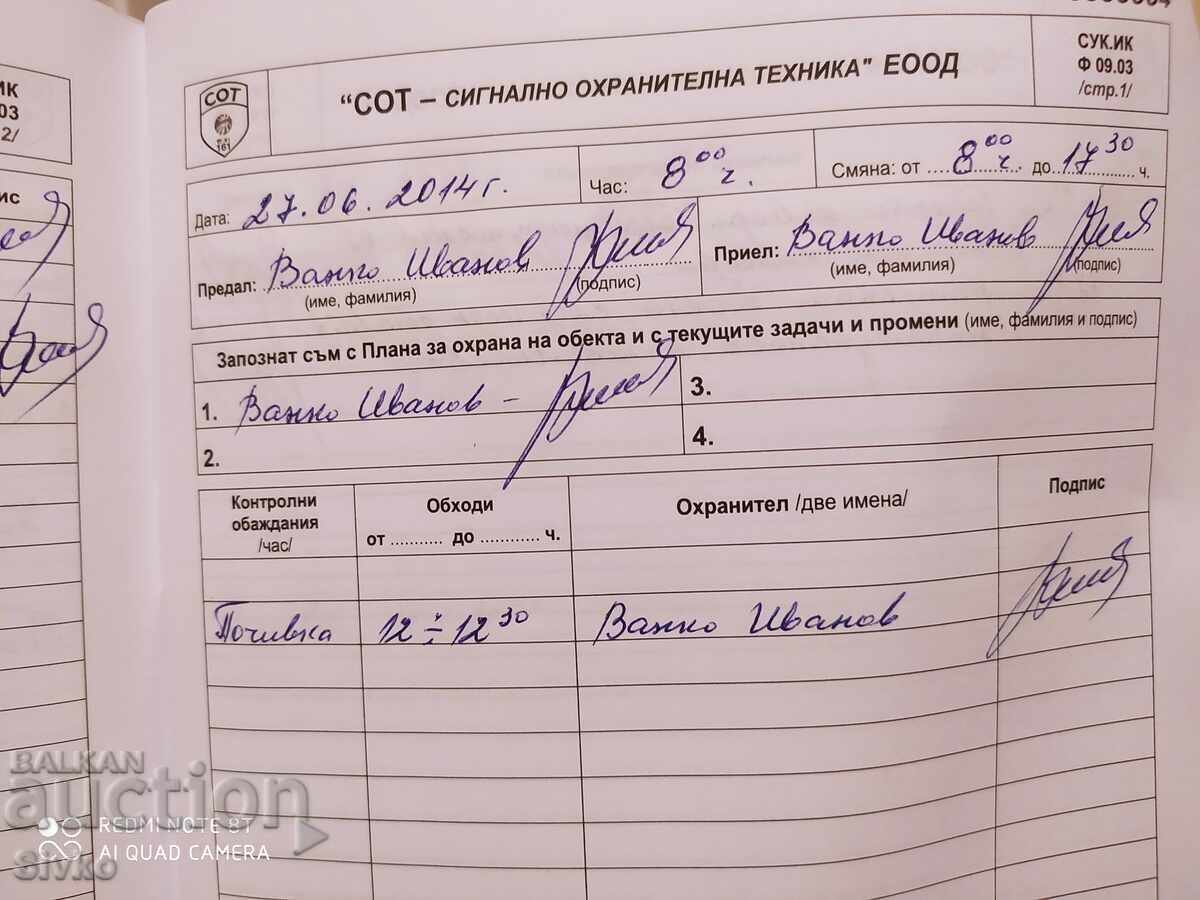 СОТ
161
"СОТ – СИГНАЛНО ОХРАНИТЕЛНА ТЕХНИКА" ЕООД
СУК.ИК
Ф 09.03
/стр.1/
ИК
03
2/
ис
Дата: 27.06.2014 г.
Час: 8 00 ч.
Смяна: от 8 00 ч. до 17 30 ч.
Предал: Ванко Иванов
(име, фамилия)
(подпис)
Приел: Ванко Иванов
(име, фамилия)
(подпис)
Запознат съм с Плана за охрана на обекта и с текущите задачи и промени (име, фамилия и подпис)
1. Ванко Иванов –
2.
3.
4.
Контролни
обаждания
/час/
Обходи
от ........... до ............ ч.
Охранител /две имена/
Подпис
Почивка
12 ÷ 12 30
Ванко Иванов
BALKAN
auction
REDMI NOTE 8T
AI QUAD CAMERA
Sivko